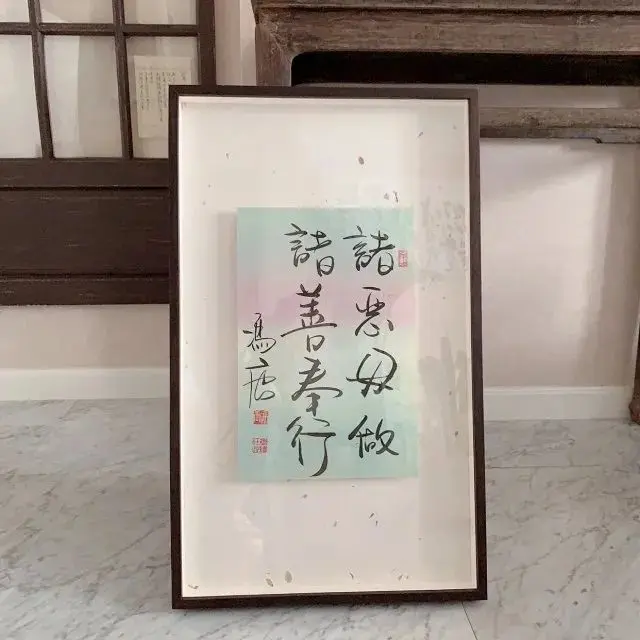 諸惡毋做
諸善奉行
馮唐